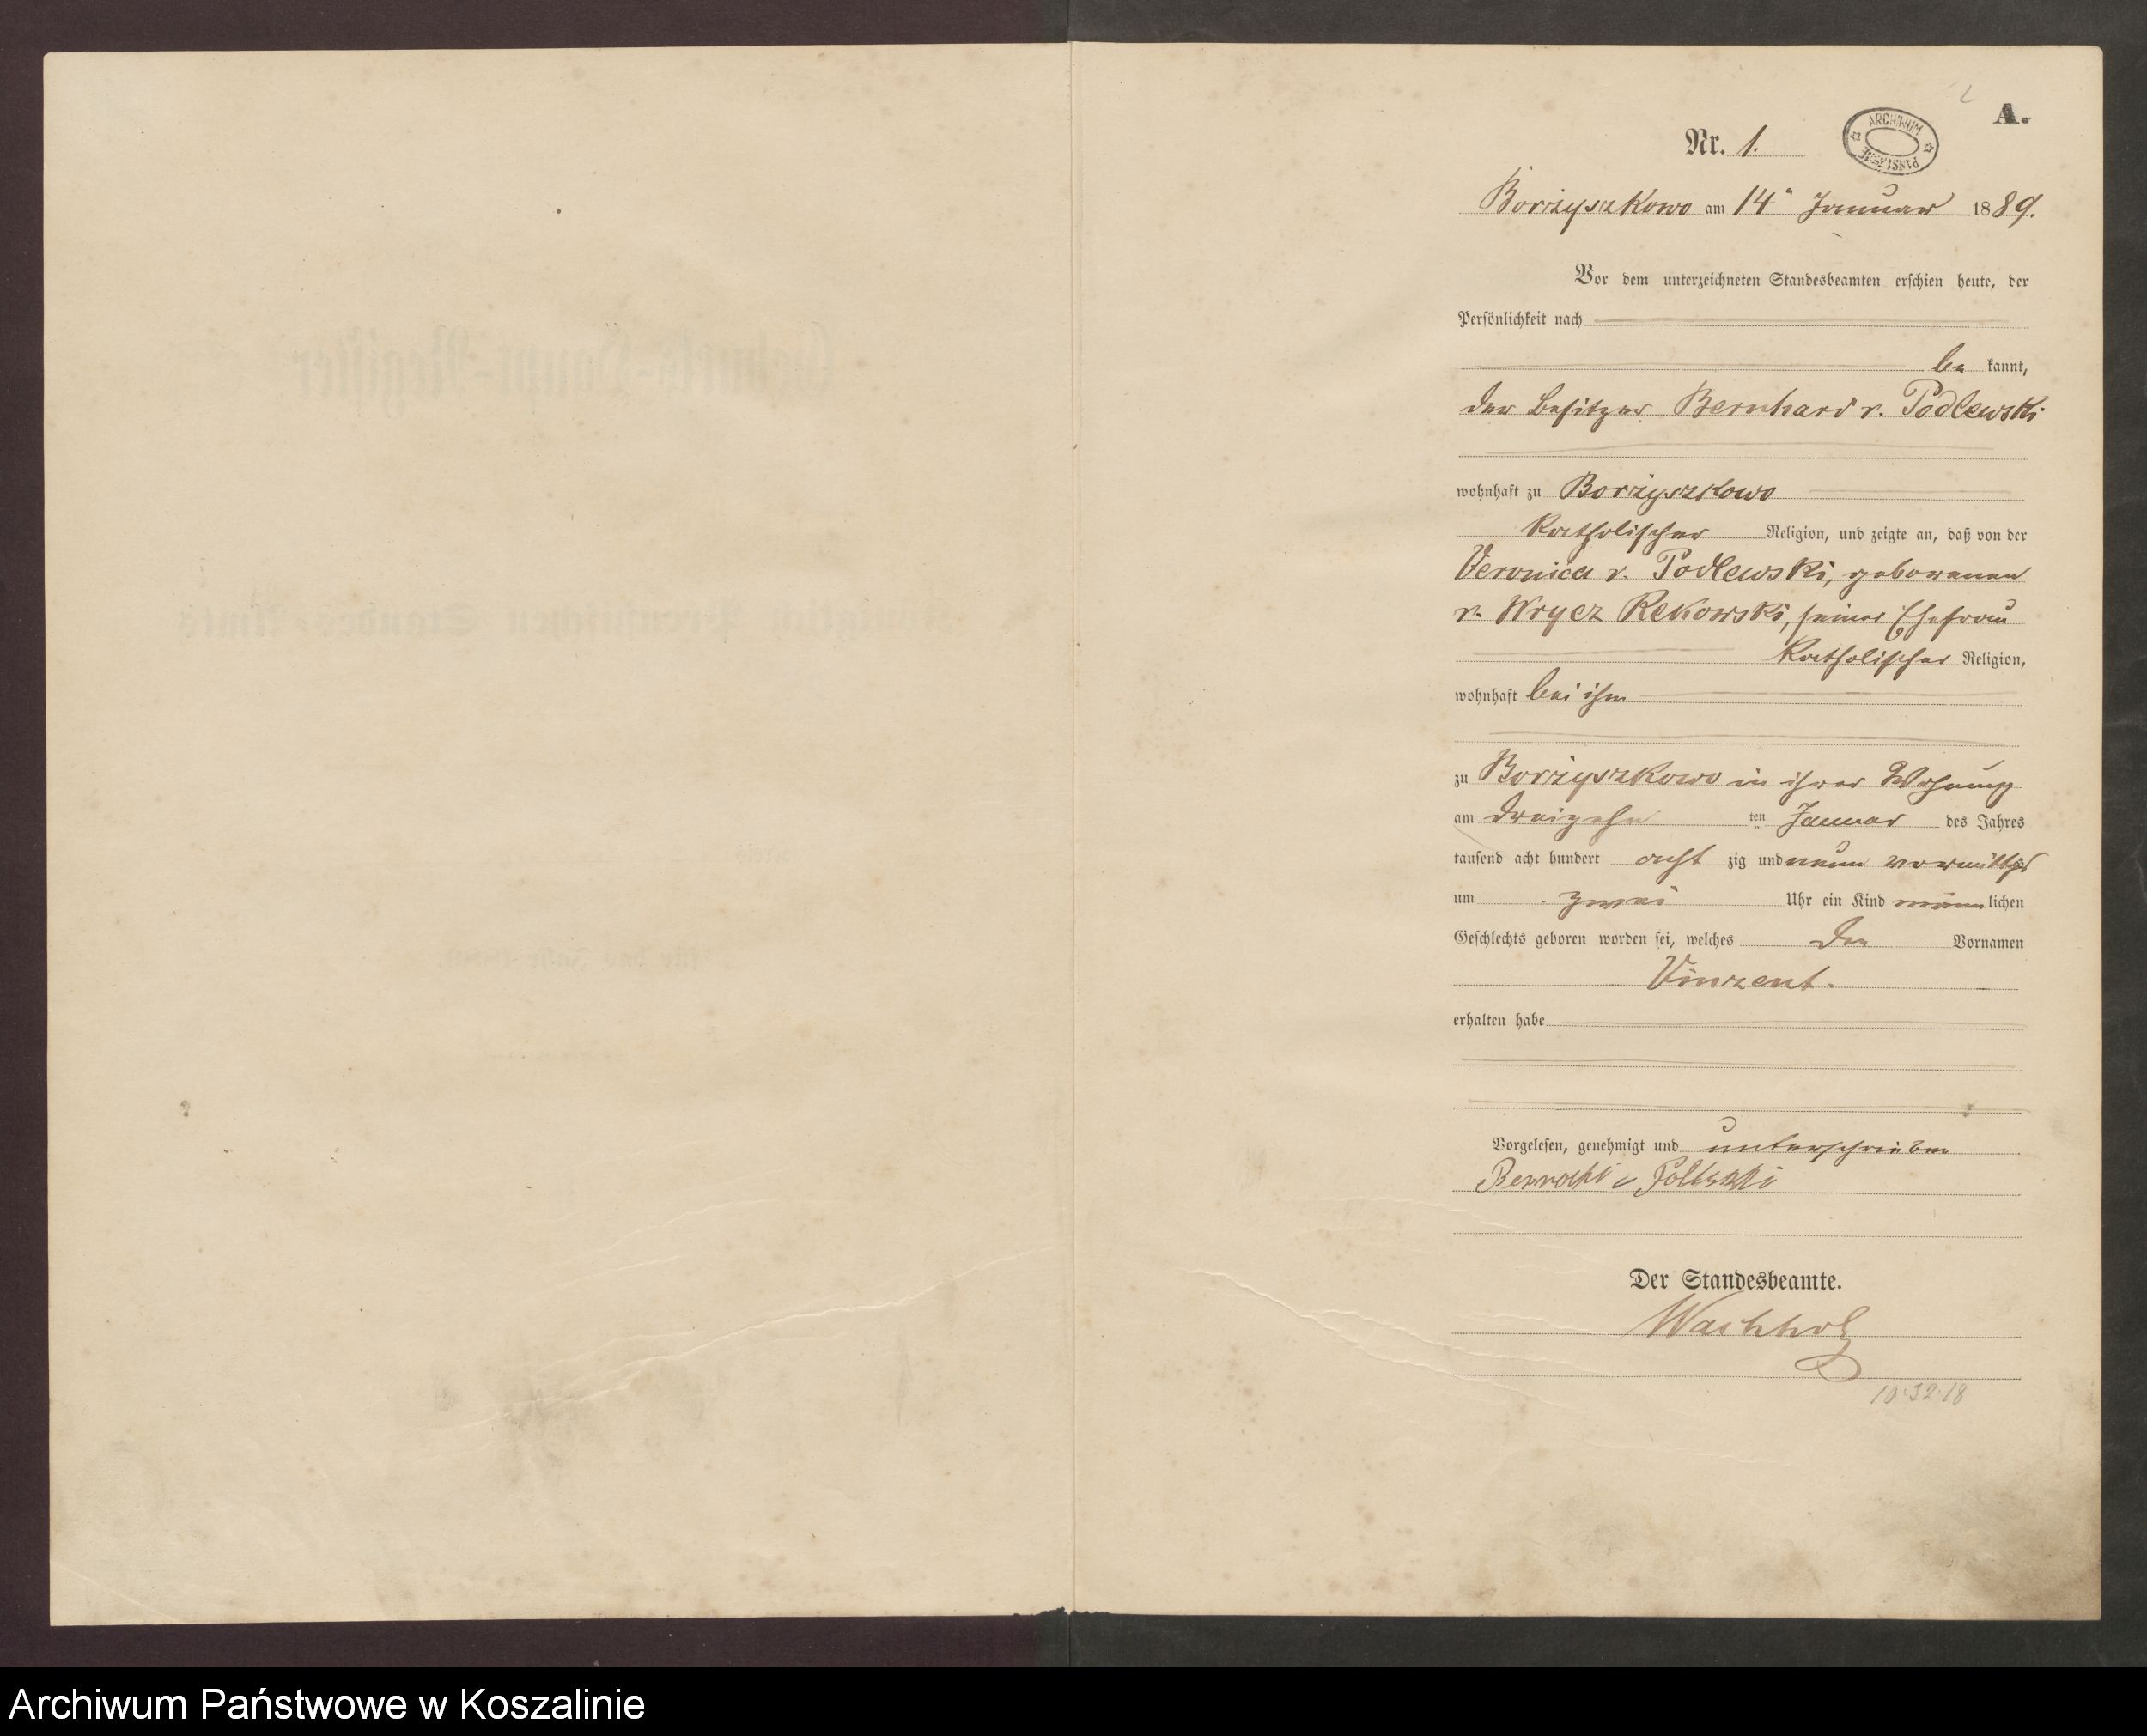 A.
Nr. 1.
ARCHIWUM PAŃSTWOWE
Borzyszkowo am 14ⁿ Januar 1889.
Vor dem unterzeichneten Standesbeamten erschien heute, der
Persönlichkeit nach
be kannt,
der Besitzer Bernhard v. Podlewski
wohnhaft zu Borzyszkowo
katholischer Religion, und zeigte an, daß von der
Veronica v. Podlewski, geborenen
v. Wrycz Rekowski, seiner Ehefrau
katholischer Religion,
wohnhaft bei ihm
zu Borzyszkowo in ihrer Wohnung
am dreizehn ten Januar des Jahres
tausend acht hundert acht zig und neun vormittgs
um zwei Uhr ein Kind männ lichen
Geschlechts geboren worden sei, welches den Vornamen
Vinzent.
erhalten habe
Vorgelesen, genehmigt und unterschrieben
Der Standesbeamte.
Wachholz
10·32·18
Archiwum Państwowe w Koszalinie